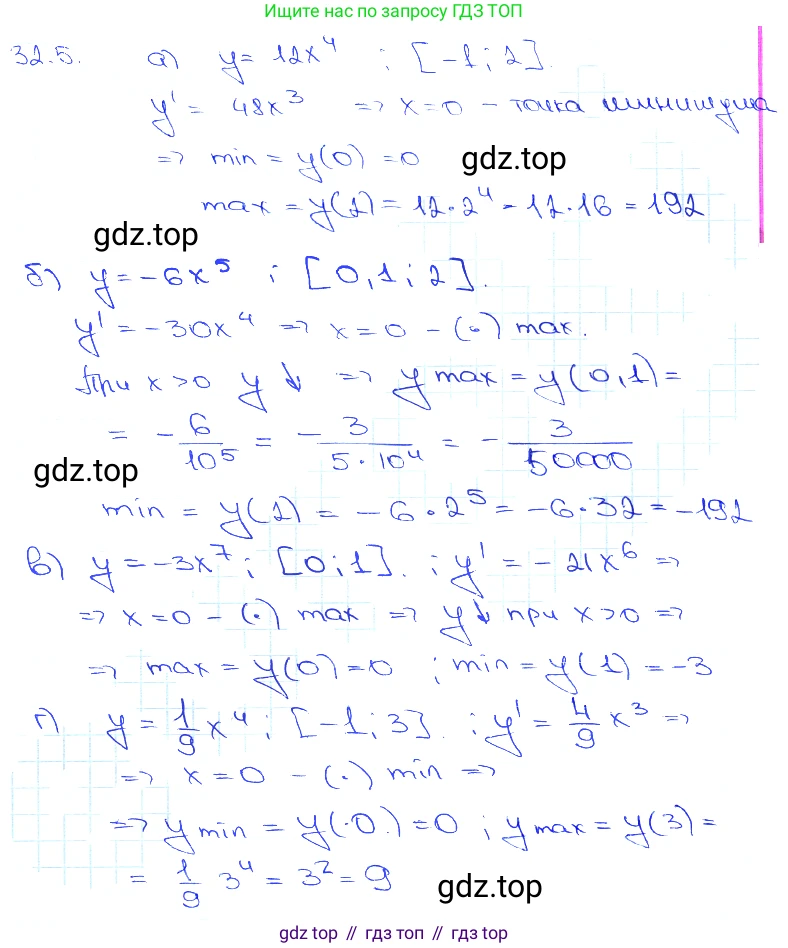 Ищите нас по запросу ГДЗ ТОП
32.5. а) y = 12x⁴ ; [-1 ; 2].
y' = 48x³ => x=0 – точка минимума
=> min = y(0) = 0
gdz.top
max = y(2) = 12·2⁴ = 12·16 = 192
gdz.top
б) y = -6x⁵ ; [0,1 ; 2].
y' = -30x⁴ => x=0 – (·) max.
При x>0 y ↓ => y max = y(0,1) =
= - 6/10⁵ = - 3/(5·10⁴) = - 3/50000
gdz.top
min = y(2) = -6·2⁵ = -6·32 = -192
в) y = -3x⁷ ; [0;1]. ; y' = -21x⁶ =>
=> x=0 – (·) max => y↓ при x>0 =>
=> max = y(0) = 0 ; min = y(1) = -3
г) y = 1/9 x⁴ ; [-1 ; 3]. ; y' = 4/9 x³ =>
=> x = 0 – (·) min =>
=> y min = y(0) = 0 ; y max = y(3) =
= 1/9 3⁴ = 3² = 9
gdz.top
gdz.top // гдз топ // гдз.top